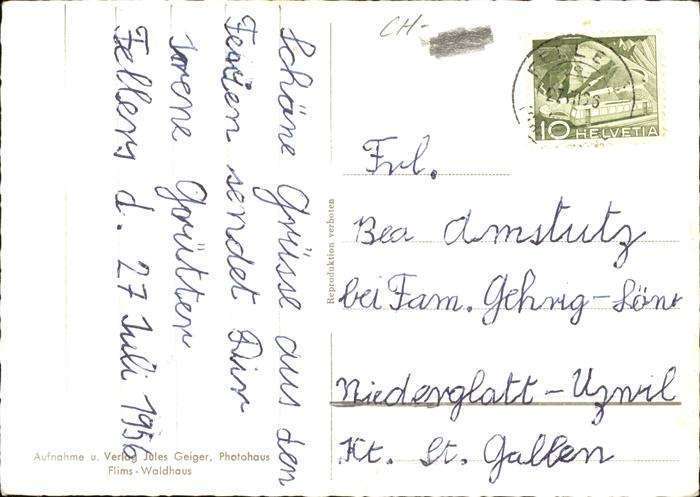 Schöne Grüsse aus den
Ferien sendet Dir
Irene Grütter
Fellers d. 27 Juli 1956
CH-
10 HELVETIA
Frl.
Bea Amstutz
bei Fam. Gehrig-Lön
Niederglatt-Uzwil
Kt. St. Gallen
Reproduktion verboten
Aufnahme u. Verlag Jules Geiger, Photohaus
Flims-Waldhaus